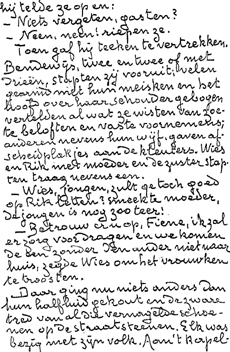 hij telde ze op en:
— Niets vergeten, gasten?
— Neen, neen! riepen ze.
Toen gaf hij teeken te vertrekken.
Bendewijs, twee en twee of met
drieën, stapten zij vooruit, velen
gearmd met hun meisken en het
hoofd over haar schouder gebogen
vertelden al wat ze wisten van zoe-
te beloften en vaste voornemens;
anderen nevens hun wijf, gaven af-
scheidplakjes aan de kleuters. Wies
en Rik met moeder en de zuster stap-
ten traag nevenseen.
— Wies, jongen, zult ge toch goed
op Rik letten? smeekte moeder,
de jongen is nog zoo teer!
— Betrouw erin op, Fiene, ik zal
er zorg voor dragen en we komen
de een zonder den ander niet naar
huis, zegde Wies om het vrouwken
te troosten.
Daar ging nu niets anders dan
hun half luid gekout en de zware
tred van al die vernagelde schoe-
nen op de straatsteenen. Elk was
bezig met zijn volk. Aan 't kapel-